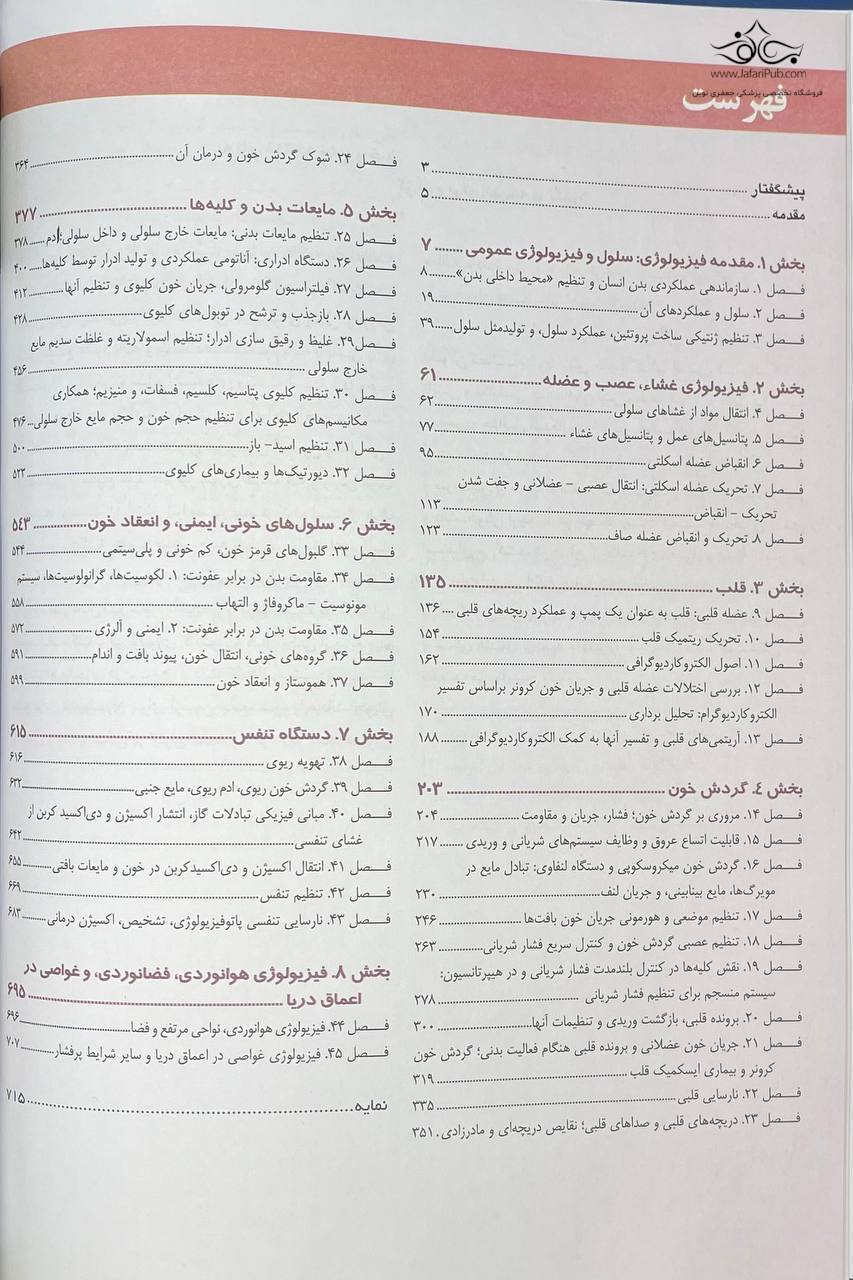 www.JafariPub.com
فروشگاه تخصصی پزشکی جعفری نوین
فهرست
پیشگفتار ۳
مقدمه ۵
بخش ۱. مقدمه فیزیولوژی: سلول و فیزیولوژی عمومی ۷
فصل ۱. سازماندهی عملکردی بدن انسان و تنظیم «محیط داخلی بدن» ۸
فصل ۲. سلول و عملکردهای آن ۱۹
فصل ۳. تنظیم ژنتیکی ساخت پروتئین، عملکرد سلول، و تولیدمثل سلول ۳۹
بخش ۲. فیزیولوژی غشاء، عصب و عضله ۶۱
فصل ۴. انتقال مواد از غشاهای سلولی ۶۲
فصل ۵. پتانسیل‌های عمل و پتانسیل‌های غشاء ۷۷
فصل ۶. انقباض عضله اسکلتی ۹۵
فصل ۷. تحریک عضله اسکلتی: انتقال عصبی – عضلانی و جفت شدن
تحریک – انقباض ۱۱۳
فصل ۸. تحریک و انقباض عضله صاف ۱۲۳
بخش ۳. قلب ۱۳۵
فصل ۹. عضله قلبی: قلب به عنوان یک پمپ و عملکرد ریچه‌های قلبی ۱۳۶
فصل ۱۰. تحریک ریتمیک قلب ۱۵۴
فصل ۱۱. اصول الکتروکاردیوگرافی ۱۶۲
فصل ۱۲. بررسی اختلالات عضله قلبی و جریان خون کرونر براساس تفسیر
الکتروکاردیوگرام: تحلیل برداری ۱۷۰
فصل ۱۳. آریتمی‌های قلبی و تفسیر آنها به کمک الکتروکاردیوگرافی ۱۸۸
بخش ۴. گردش خون ۲۰۳
فصل ۱۴. مروری بر گردش خون؛ فشار، جریان و مقاومت ۲۰۴
فصل ۱۵. قابلیت اتساع عروق و وظایف سیستم‌های شریانی و وریدی ۲۱۷
فصل ۱۶. گردش خون میکروسکوپی و دستگاه لنفاوی: تبادل مایع در
مویرگ‌ها، مایع بینابینی، و جریان لنف ۲۳۰
فصل ۱۷. تنظیم موضعی و هورمونی جریان خون بافت‌ها ۲۴۶
فصل ۱۸. تنظیم عصبی گردش خون و کنترل سریع فشار شریانی ۲۶۳
فصل ۱۹. نقش کلیه‌ها در کنترل بلندمدت فشار شریانی و در هیپرتانسیون:
سیستم منسجم برای تنظیم فشار شریانی ۲۷۸
فصل ۲۰. برونده قلبی، بازگشت وریدی و تنظیمات آنها ۳۰۰
فصل ۲۱. جریان خون عضلانی و برونده قلبی هنگام فعالیت بدنی؛ گردش خون
کرونر و بیماری ایسکمیک قلب ۳۱۹
فصل ۲۲. نارسایی قلبی ۳۳۵
فصل ۲۳. دریچه‌های قلبی و صداهای قلبی؛ نقایص دریچه‌ای و مادرزادی ۳۵۱
فصل ۲۴. شوک گردش خون و درمان آن ۳۶۴
بخش ۵. مایعات بدن و کلیه‌ها ۳۷۷
فصل ۲۵. تنظیم مایعات بدنی: مایعات خارج سلولی و داخل سلولی؛ ادم ۳۷۸
فصل ۲۶. دستگاه ادراری: آناتومی عملکردی و تولید ادرار توسط کلیه‌ها ۴۰۰
فصل ۲۷. فیلتراسیون گلومرولی، جریان خون کلیوی و تنظیم آنها ۴۱۲
فصل ۲۸. بازجذب و ترشح در توبول‌های کلیوی ۴۲۸
فصل۲۹. غلیظ و رقیق سازی ادرار؛ تنظیم اسمولاریته و غلظت سدیم مایع
خارج سلولی ۴۵۶
فصل ۳۰. تنظیم کلیوی پتاسیم، کلسیم، فسفات، و منیزیم؛ همکاری
مکانیسم‌های کلیوی برای تنظیم حجم خون و حجم مایع خارج سلولی ۴۷۶
فصل ۳۱. تنظیم اسید– باز ۵۰۰
فصل ۳۲. دیورتیک‌ها و بیماری‌های کلیوی ۵۲۳
بخش ۶. سلول‌های خونی، ایمنی، و انعقاد خون ۵۴۳
فصل ۳۳. گلبول‌های قرمز خون، کم خونی و پلی‌سیتمی ۵۴۴
فصل ۳۴. مقاومت بدن در برابر عفونت: ۱. لکوسیت‌ها، گرانولوسیت‌ها، سیستم
مونوسیت – ماکروفاژ و التهاب ۵۵۸
فصل ۳۵. مقاومت بدن در برابر عفونت: ۲. ایمنی و آلرژی ۵۷۲
فصل ۳۶. گروه‌های خونی، انتقال خون، پیوند بافت و اندام ۵۹۱
فصل ۳۷. هموستاز و انعقاد خون ۵۹۹
بخش ۷. دستگاه تنفس ۶۱۵
فصل ۳۸. تهویه ریوی ۶۱۶
فصل ۳۹. گردش خون ریوی، ادم ریوی، مایع جنبی ۶۳۲
فصل ۴۰. مبانی فیزیکی تبادلات گاز، انتشار اکسیژن و دی‌اکسید کربن از
غشای تنفسی ۶۴۲
فصل ۴۱. انتقال اکسیژن و دی‌اکسیدکربن در خون و مایعات بافتی ۶۵۵
فصل ۴۲. تنظیم تنفس ۶۶۹
فصل ۴۳. نارسایی تنفسی پاتوفیزیولوژی، تشخیص، اکسیژن درمانی ۶۸۳
بخش ۸. فیزیولوژی هوانوردی، فضانوردی، و غواصی در
اعماق دریا ۶۹۵
فصل ۴۴. فیزیولوژی هوانوردی، نواحی مرتفع و فضا ۶۹۶
فصل ۴۵. فیزیولوژی غواصی در اعماق دریا و سایر شرایط پرفشار ۷۰۷
نمایه ۷۱۵